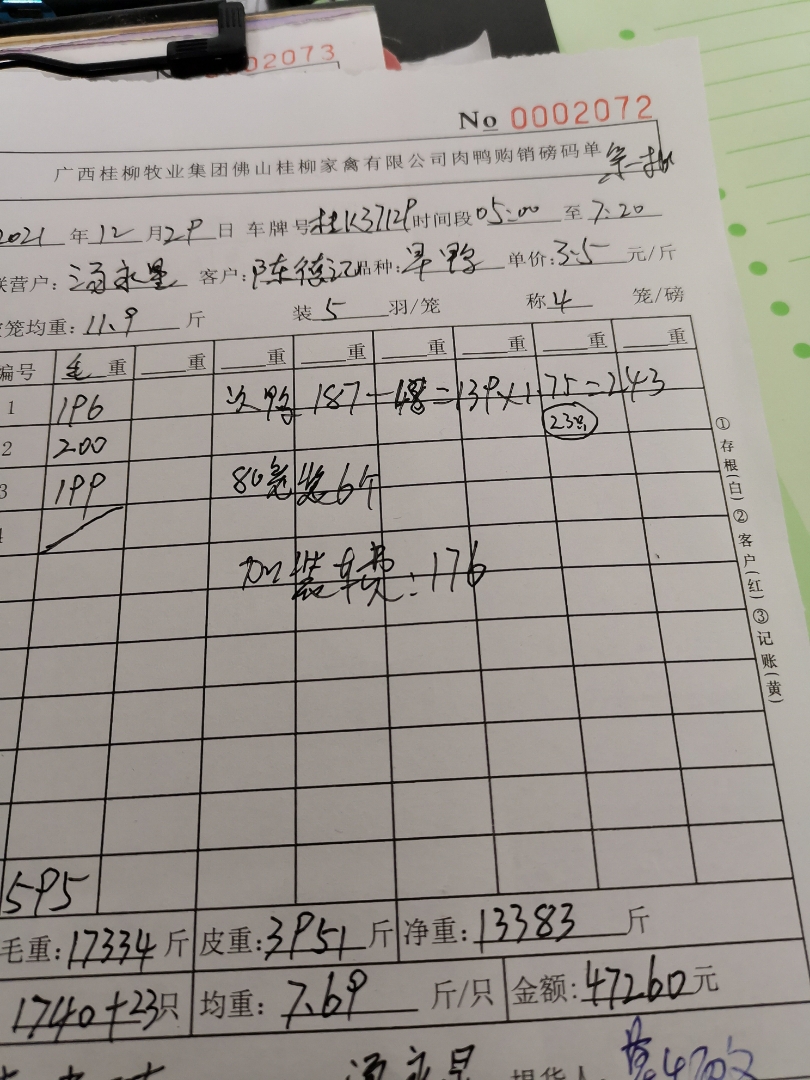 0002073
No 0002072
广西桂柳牧业集团佛山桂柳家禽有限公司肉鸭购销磅码单 第一批
2021 年 12 月 29 日 车牌号 桂K37129 时间段 05:00 至 7:20
联营户: 永星 客户: 陈德记 品种: 旱鸭 单价: 3.5 元/斤
笼均重: 11.9 斤 装 5 羽/笼 称 4 笼/磅
编号 毛重 重 重 重 重 重 重 重
1 196 次鸭 187-48=139×1.75=243
2 200 23只
3 199 80毫装6个
4
加装车费:176
595
毛重: 17334 斤 皮重: 3951 斤 净重: 13383 斤
1740+23只 均重: 7.69 斤/只 金额: 47260 元
永星 提货人:
①存根(白)②客户(红)③记账(黄)